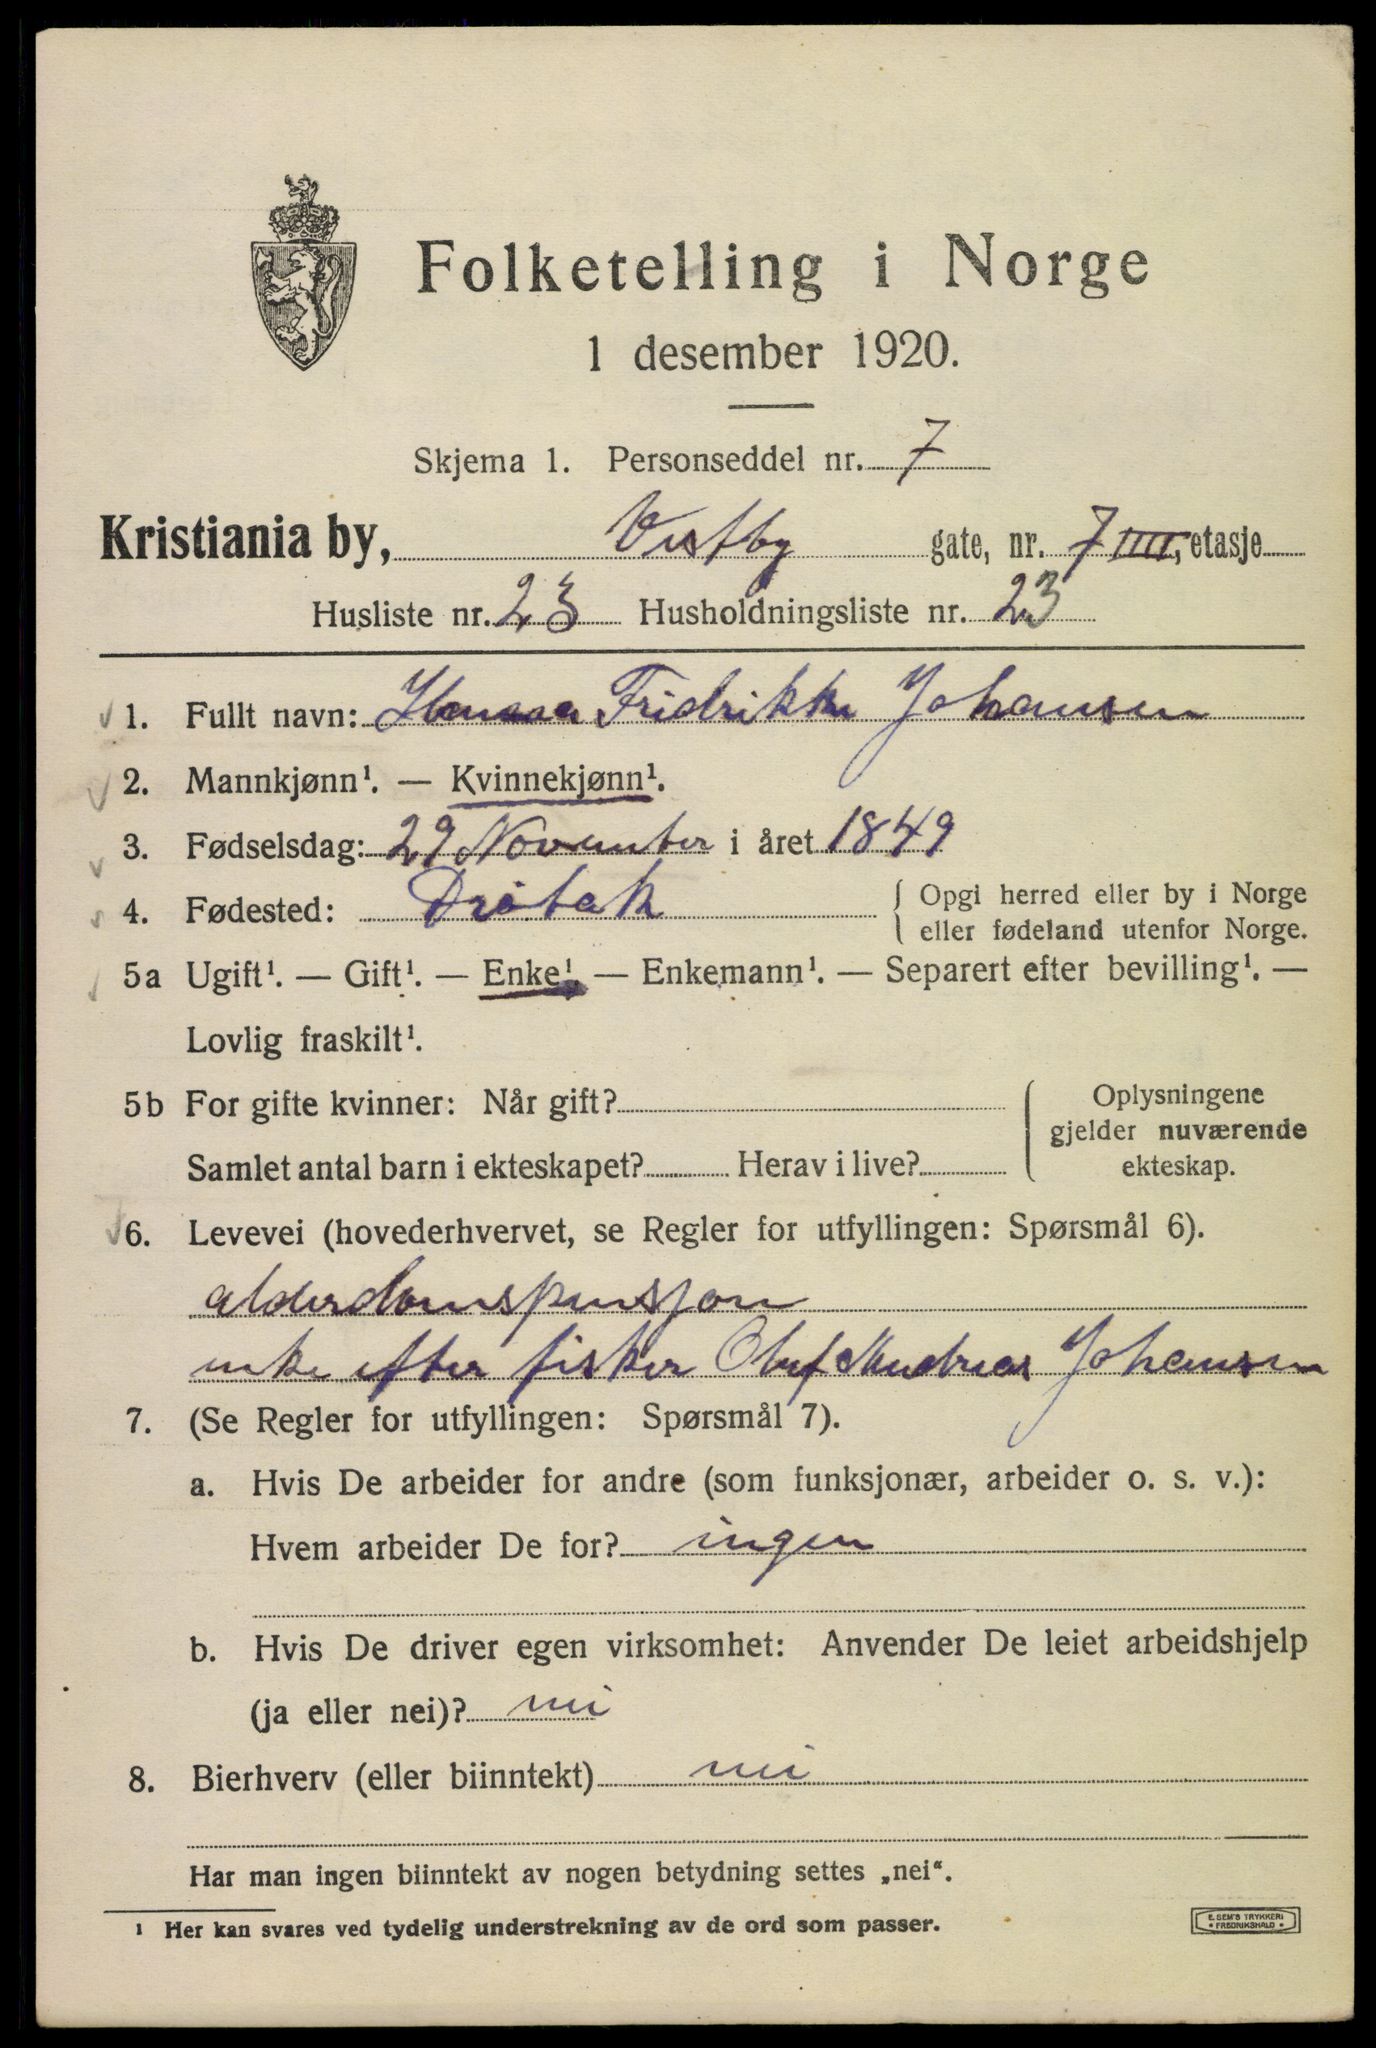 Folketelling i Norge
1 desember 1920.
Skjema 1. Personseddel nr. 7
Kristiania by, Vestby gate, nr. 7 IIII, etasje
Husliste nr. 23 Husholdningsliste nr. 23
1. Fullt navn: Fridrikke Johansen
2. Mannkjønn¹. — Kvinnekjønn¹.
3. Fødselsdag: 29 November i året 1849
4. Fødested: Drøbak { Opgi herred eller by i Norge
eller fødeland utenfor Norge.
5a Ugift¹. — Gift¹. — Enke¹. — Enkemann¹. — Separert efter bevilling¹. —
Lovlig fraskilt¹.
5b For gifte kvinner: Når gift?
Samlet antal barn i ekteskapet? Herav i live?
Oplysningene
gjelder nuværende
ekteskap.
6. Levevei (hovederhvervet, se Regler for utfyllingen: Spørsmål 6).
alderdomspensjon
enke efter fisker Oluf Andreas Johansen
7. (Se Regler for utfyllingen: Spørsmål 7).
a. Hvis De arbeider for andre (som funksjonær, arbeider o. s. v.):
Hvem arbeider De for? ingen
b. Hvis De driver egen virksomhet: Anvender De leiet arbeidshjelp
(ja eller nei)? nei
8. Bierhverv (eller biinntekt) nei
Har man ingen biinntekt av nogen betydning settes „nei“.
¹ Her kan svares ved tydelig understrekning av de ord som passer.
E. SEM'S TRYKKERI
• FREDRIKSHALD •